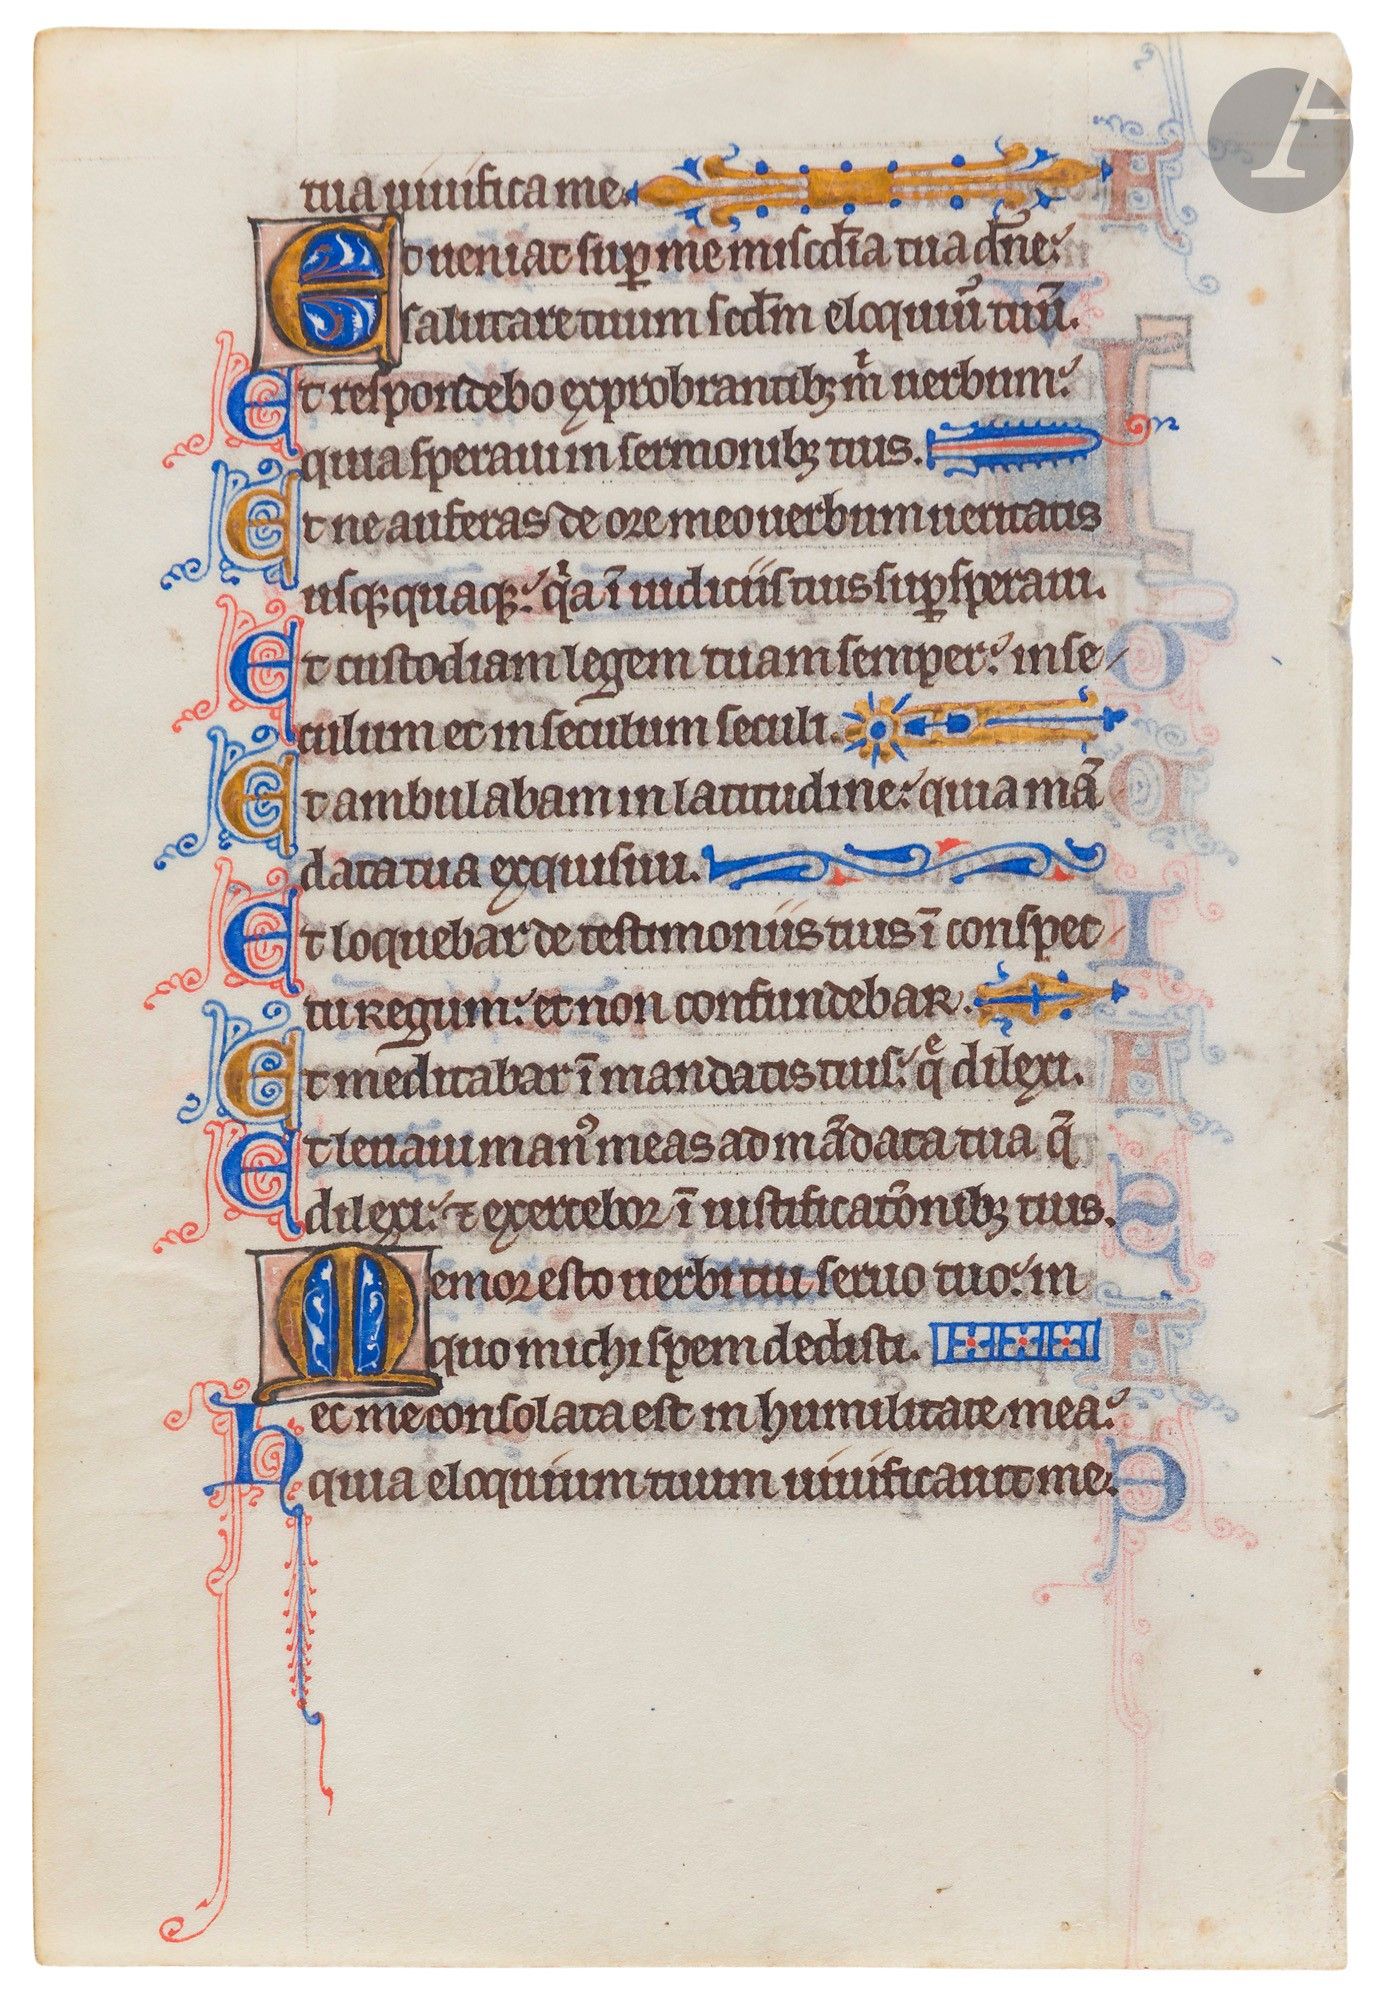 tua uiuifica me.
Et ueniat sup̲ me misc̄dia tua dn̄e:
salutare tuum scd̄m eloquiū tuū.
Et respondebo exprobrantibꝫ m̅ uerbum:
quia speraui in sermonibꝫ tuis.
Et ne auferas de ore meo uerbum ueritatis
usqꝫquaqꝫ: qͥa ī iudiciis tuis suꝑsperaui.
Et custodiam legem tuam semper: in se/
culum et in seculum seculi.
Et ambulabam in latitudine: quia mā
data tua exquisiui.
Et loquebar de testimoniis tuis ī conspec/
tu regum: et non confundebar.
Et meditabar ī mandatis tuis: qͤ dilexi.
Et leuaui man᾽ meas ad mādata tua q̄
dilexi: ⁊ exercebor ī iustificatōnibꝫ tuis.
Memor esto uerbi tui seruo tuo: in
quo michi spem dedisti.
hec me consolata est in humilitate mea:
quia eloquium tuum uiuificauit me.